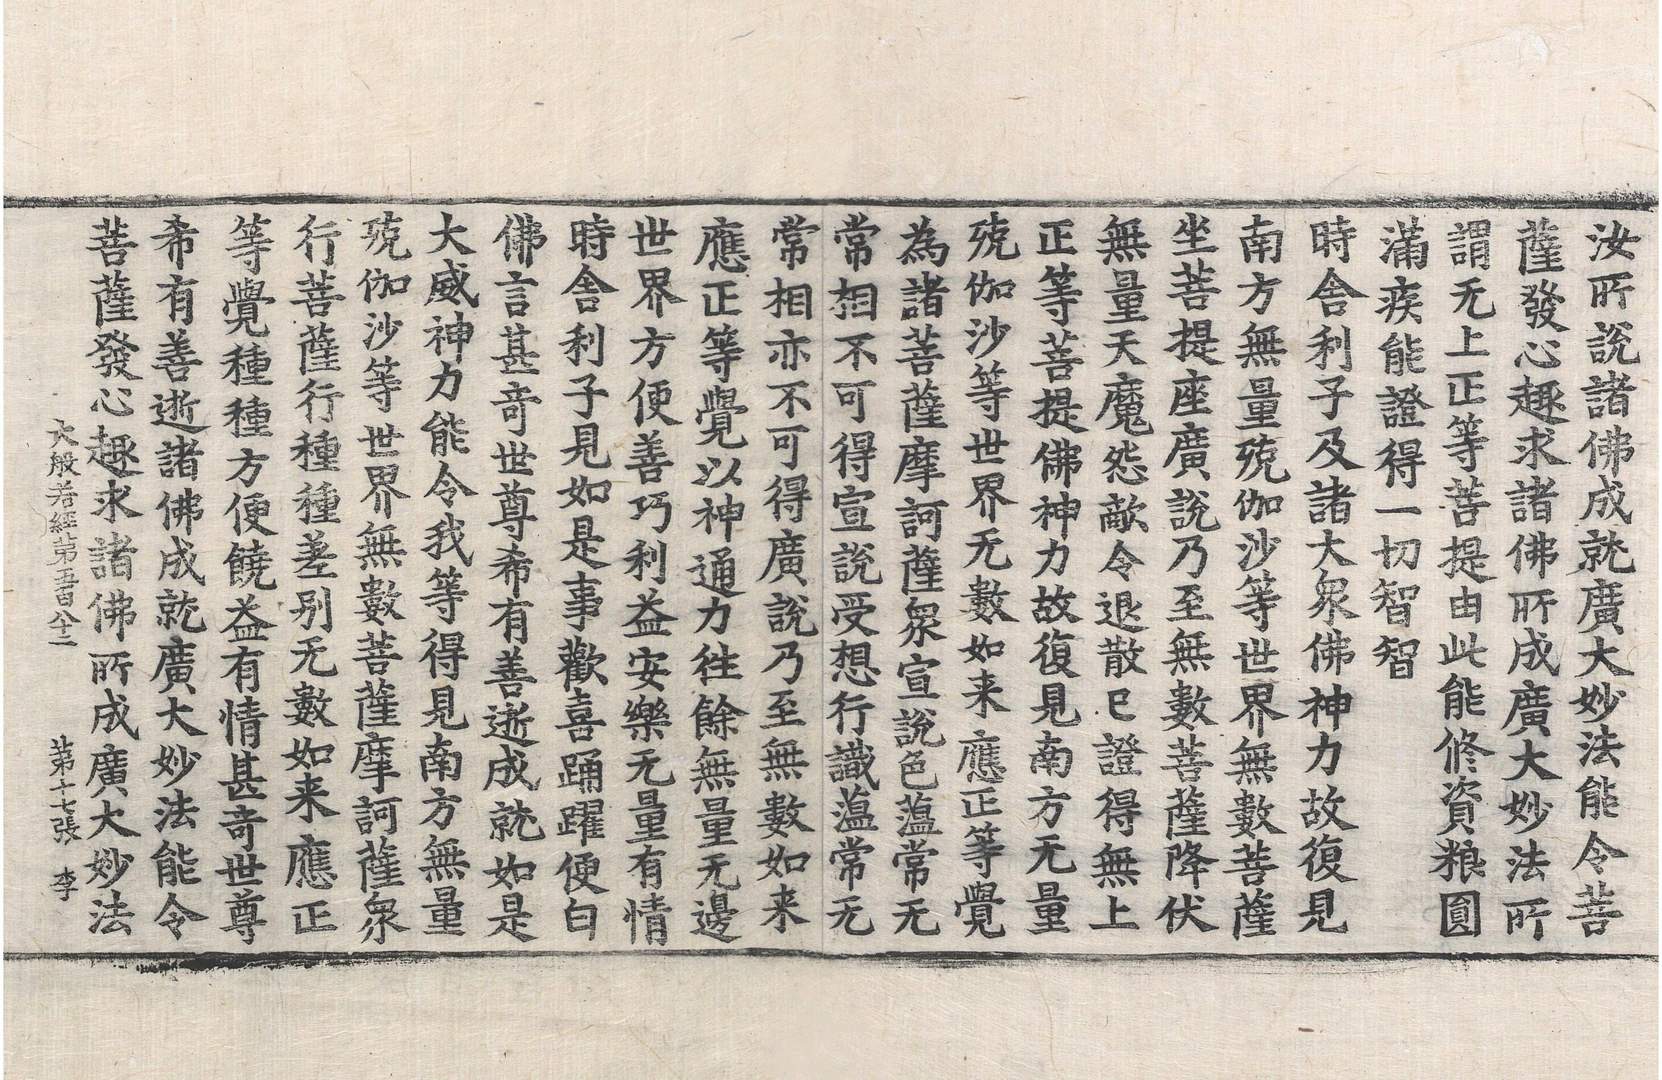 汝所說諸佛成就廣大妙法能令菩
薩發心趣求諸佛所成廣大妙法所
謂无上正等菩提由此能修資粮圓
滿疾能證得一切智智
時舍利子及諸大衆佛神力故復見
南方無量殑伽沙等世界無數菩薩
坐菩提座廣說乃至無數菩薩降伏
無量天魔怨敵令退散已證得無上
正等菩提佛神力故復見南方无量
殑伽沙等世界无數如来應正等覺
為諸菩薩摩訶薩衆宣說色蘊常无
常相不可得宣說受想行識薀常无
常相亦不可得廣說乃至無數如来
應正等覺以神通力往餘無量无邊
世界方便善巧利益安樂无量有情
時舍利子見如是事歡喜踊躍便白
佛言甚奇世尊希有善逝成就如是
大威神力能令我等得見南方無量
殑伽沙等世界無數菩薩摩訶薩衆
行菩薩行種種差别无數如来應正
等覺種種方便饒益有情甚奇世尊
希有善逝諸佛成就廣大妙法能令
菩薩發心趣求諸佛所成廣大妙法
大般若經第五百八十二 第十七張 李